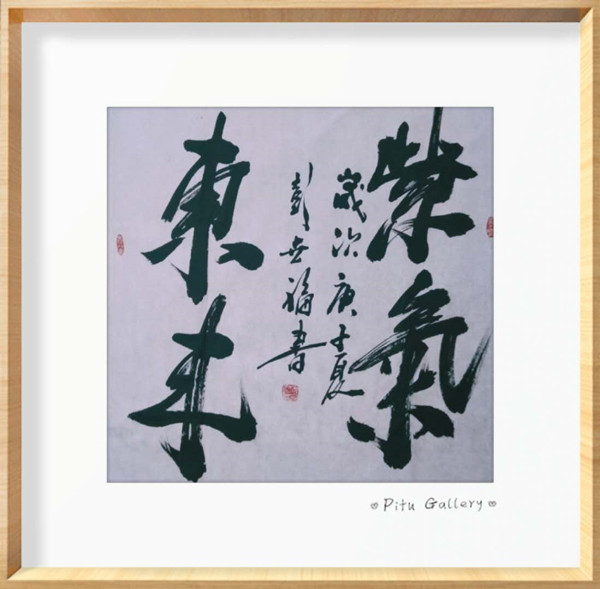 紫氣
東来
歲次庚子夏
彭世福書
Pitu Gallery